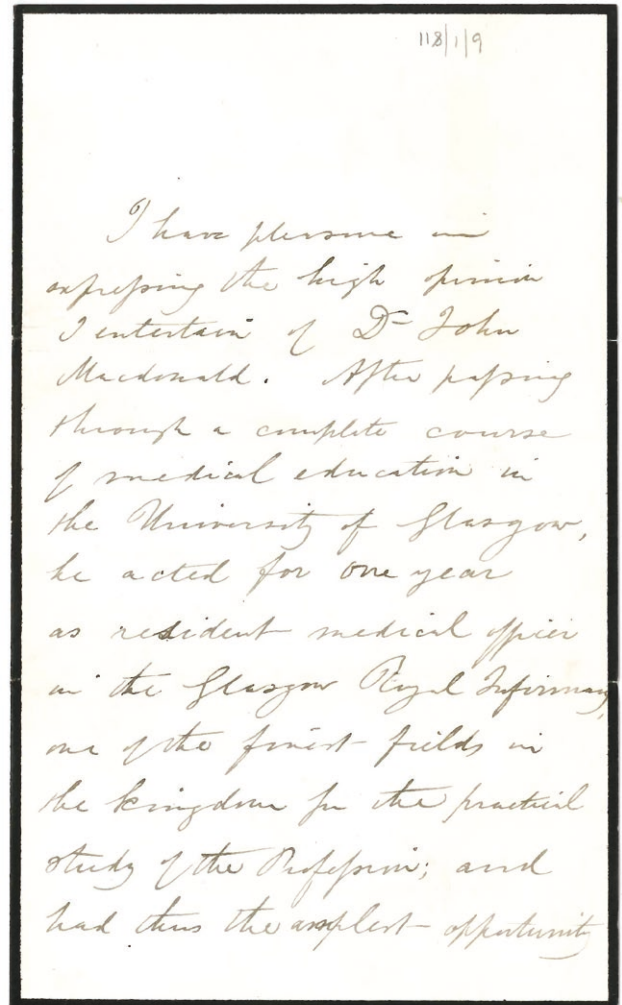 118/1/9
I have pleasure in
expressing the high opinion
I entertain of Dr John
Macdonald. After passing
through a complete course
of medical education in
the University of Glasgow,
he acted for one year
as resident medical officer
in the Glasgow Royal Infirmary,
one of the finest fields in
the kingdom for the practical
study of the Profession; and
had thus the amplest opportunity